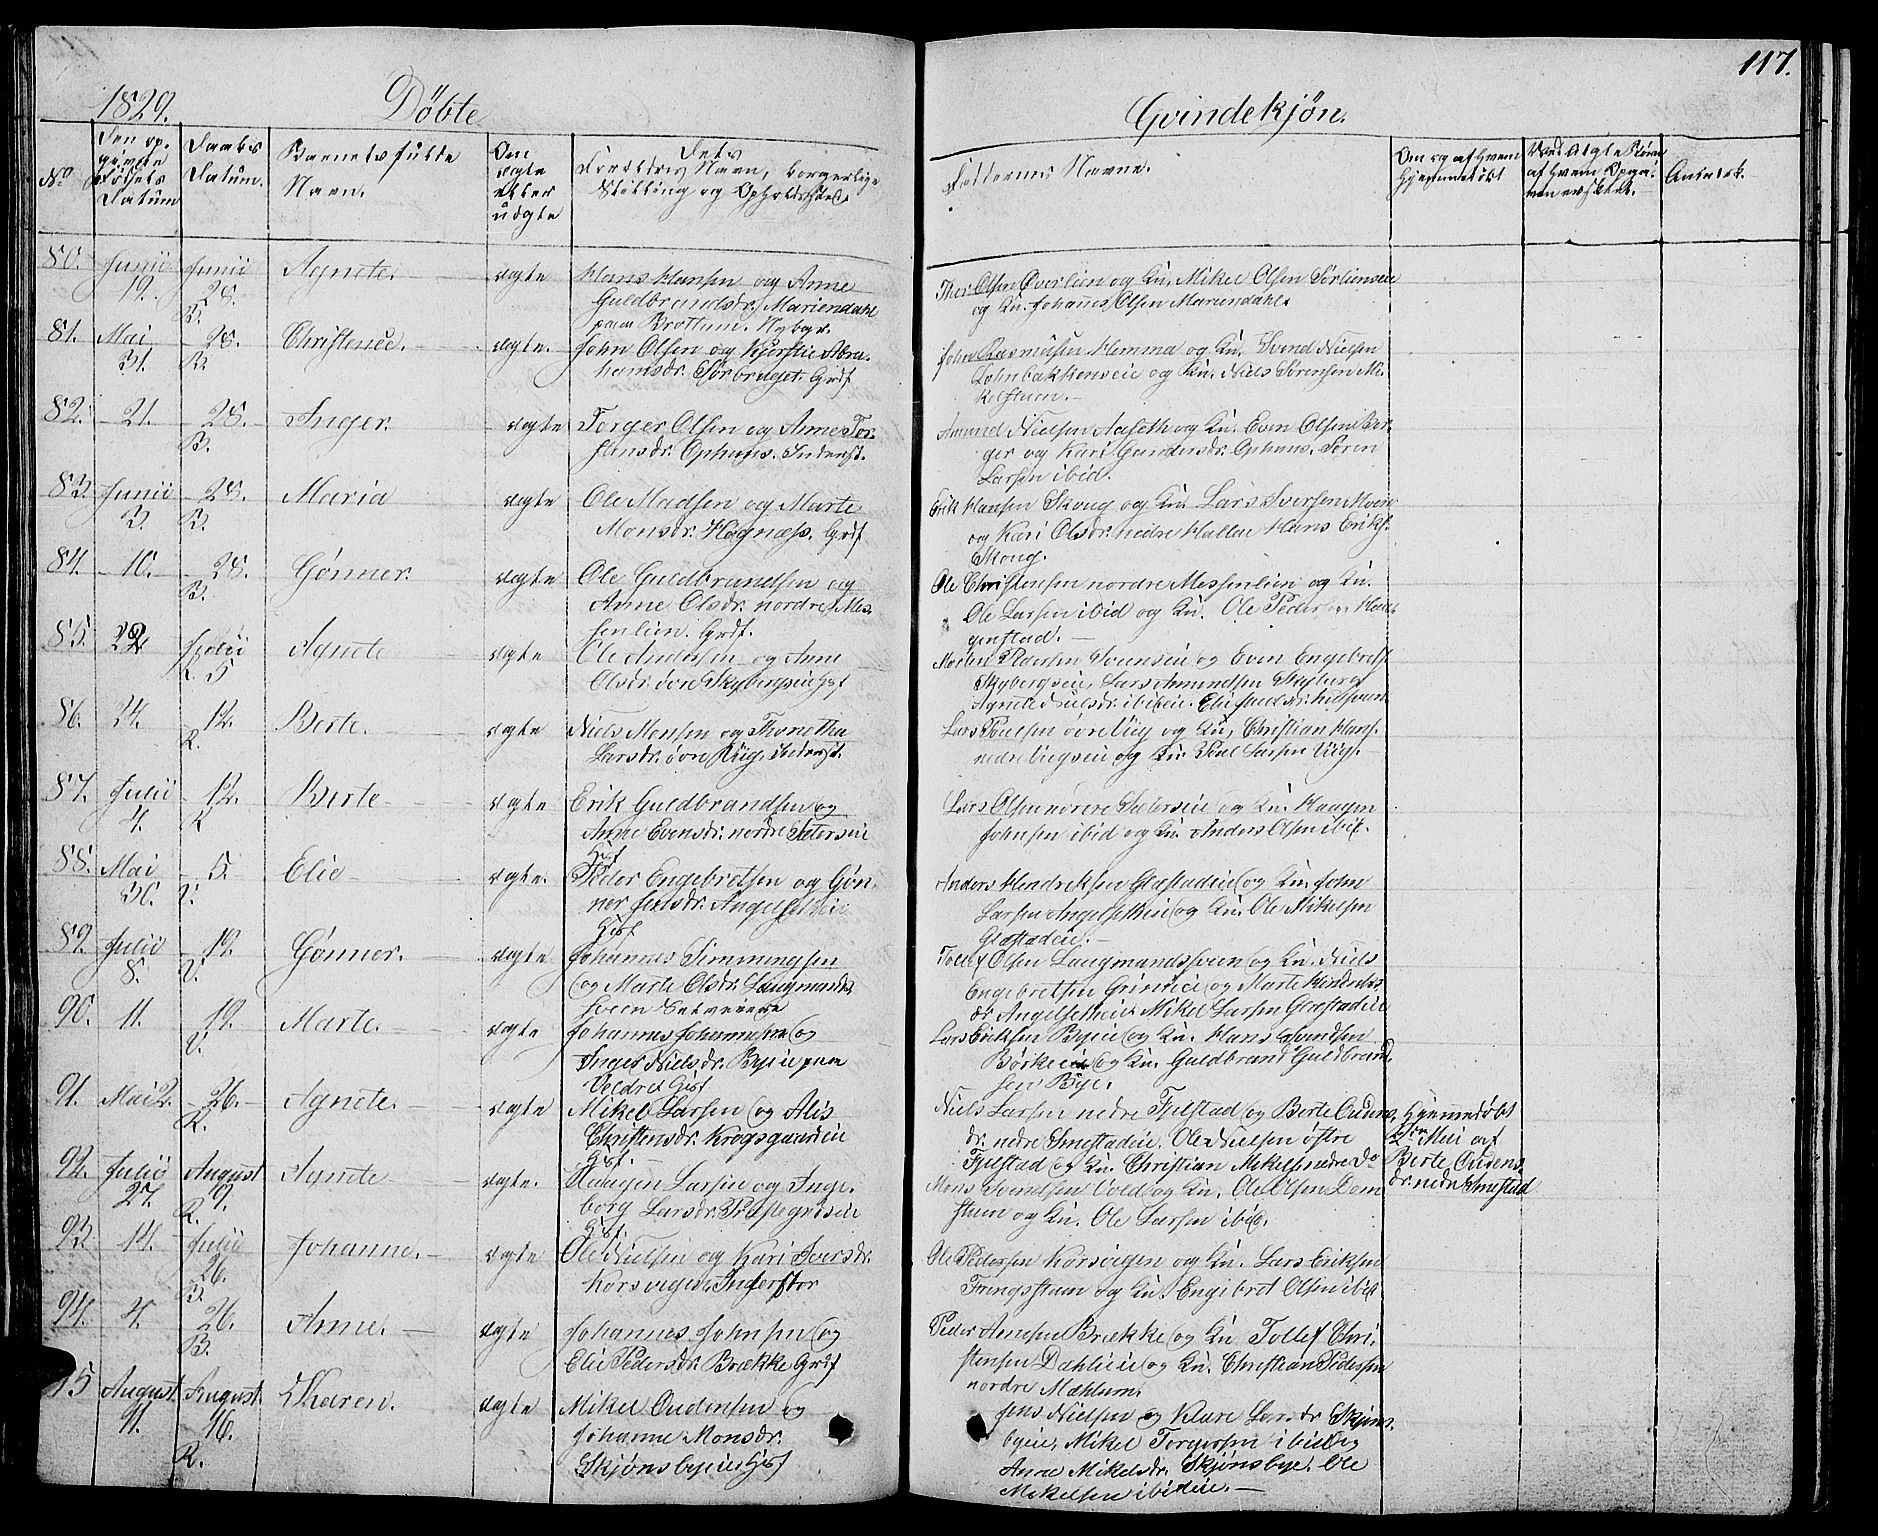 117.
1829. Döbte Qvindekjön.
No
Den op-
givne
Födsels
Datum
Daabs
Datum.
Barnets fulde
Navn.
Om
ægte
eller
uægte
Dets
Forældres Navn, borgerlige
Stilling og Opholdssted.
Faddernes Navne.
Om og af hvem
hjemmedöbt
Anmærk.
80. Junii 19. Junii 28. B. Agnete. ægte
Hans Hansen og Anne
Guldbrandsdr. Mariendahl
paa Brottum. Nybyr.
Thor Olsen Överlien og Ku. Mikel Olsen Sörlienseie
og Ku. Johannes Olsen Mariendahl.
81. Mai 31. 28. B. Christence. ægte.
John Olsen og Kjerstie Abra-
hamsdr. Sörbraget. Grdf
John Rasmusen Hemma og Ku. Svend Nielsen
Lohnbakkenseie og Ku. Niels Sörensen Mi-
kelstum.
82. 21. 28. B. Inger. ægte
Torger Olsen og Anne Tor-
stensdr. Ophuus. Inderst.
Amund Nielsen Aaseth og Ku. Even Olsen Bir-
ger og Kari Gundersdr. Ophuus. Sören
Larsen ibid.
83. Junii 3. 28. B. Maria ægte
Ole Madsen og Marte
Monsdr. Hagnæss. Grdf
Erik Hansen Skoug og Ku. Lars Iversen Moen
og Kari Olsdr. nedre Hallan Hans Eriks.
Skoug.
84. 10. 28. B. Gönner. ægte
Ole Guldbrandsen og
Anne Olsdr. nordre Mes-
senlien. Grdf.
Ole Christensen nordre Messenlien og Ku.
Ole Larsen ibid og Ku. Ole Pedersen Hau-
genstad.
85. 22 Julii R. 5 Agnete ægte
Ole Andersen og Anne
Olsdr. övre Skybergseie Hsf
Morten Pedersen Sveenseie og Even Engebrets.
Skybergseie, Lars Amundsen Skyberg
Agnete Nielsdr. ibideie.
86. 24. 12. R. Berte. ægte
Niels Monsen og Thonethe
Larsdr. övre Riig. Inderst.
Lars Poulsen övre Riig og Ku, Christian Hans.
nedre Riigseie og Ku. Poul Larsen Riig.
87. Julii 4. 12. R Berte ægte
Erik Guldbrandsen og
Anne Evensdr. nordre Sæterseie
Hsf
Lars Olsen nörere Sæterseie og Ku. Haagen
Johnsen ibid og Ku. Anders Olsen ibid.
88. Mai 30. 5. V. Elie ægte.
Peder Engebretsen og Gön-
ner Jensdr. Angelsetheie
Hsf
Anders Hendriksen Glæstadeie og Ku. John
Larsen Angelsetheie og Ku. Ole Mikelsen
Glæstadeie.
89. Julii 8. 19. V. Gönner. ægte
Johannes Simmingsen
og Marte Olsdr. Laugmands
sveen Selveiere
Tollef Olsen Laugmandssveen og Ku. Niels
Engebretsen Grinieie og Marte Hendriks-
dr. Angelsetheie Mikel Larsen Glæstadeie
90. 11. 19. V. Marte. ægte
Johannes Johannesen og
Inger Nielsdr. Byeie paa
Veldre Hsf
Lars Eriksen Byeie og Ku. Hans Svendsen
Börkeeie og Ku. Guldbrand Guldbrand-
sen Bye.
91. Mai 2. 26. R. Agnete. ægte
Mikel Larsen og Alis
Christensdr. Krogsgaardeie
Hsf.
Niels Larsen nedre Fjelstad og Berte Oudens-
dr. nedre Smestadeie. Ole Nielsen östre
Fjelstad og Ku. Christian Mikelsen nedre Do
Hjemmedöbt
2den Mai af
Berte Oudens-
dr. nedre Smestad
92. Julii 27. August 9. R. Agnete ægte.
Haagen Larsen og Inge-
borg Larsdr.
Hsf.
Mons Svendsen Vold og Ku. Ole Olsen Dom-
stum og Ku. Ole Larsen ibid.
93. 14. Julii 26. B. Johanne. ægte
Ole Nielsen og Kari Iversdr.
Korsvigen, Inderster
Ole Pedersen Korsvigen og Ku. Lars Eriksen
Frengstuen og Ku. Engebret Olsen ibid
94. 4. 26. B. Anne. ægte
Johannes Johnsen og
Elie Pedersdr. Brække Grdf
Peder Amesen Brække og Ku Tollef Chri-
stensen Dahleie og Ku. Christian Pedersen
nordre Mæhlum.
95 August 11. August 16. R. Karen. ægte
Mikel Oudensen og
Johanne Monsdr.
Skjönsbyeie Hsf
Jens Nielsen og Klare Larsdr Skjöns-
byeie, Mikel Torgersen ibid og
Anne Mikelsdr. Skjönsbye. Ole
Mikelsen ibideie.